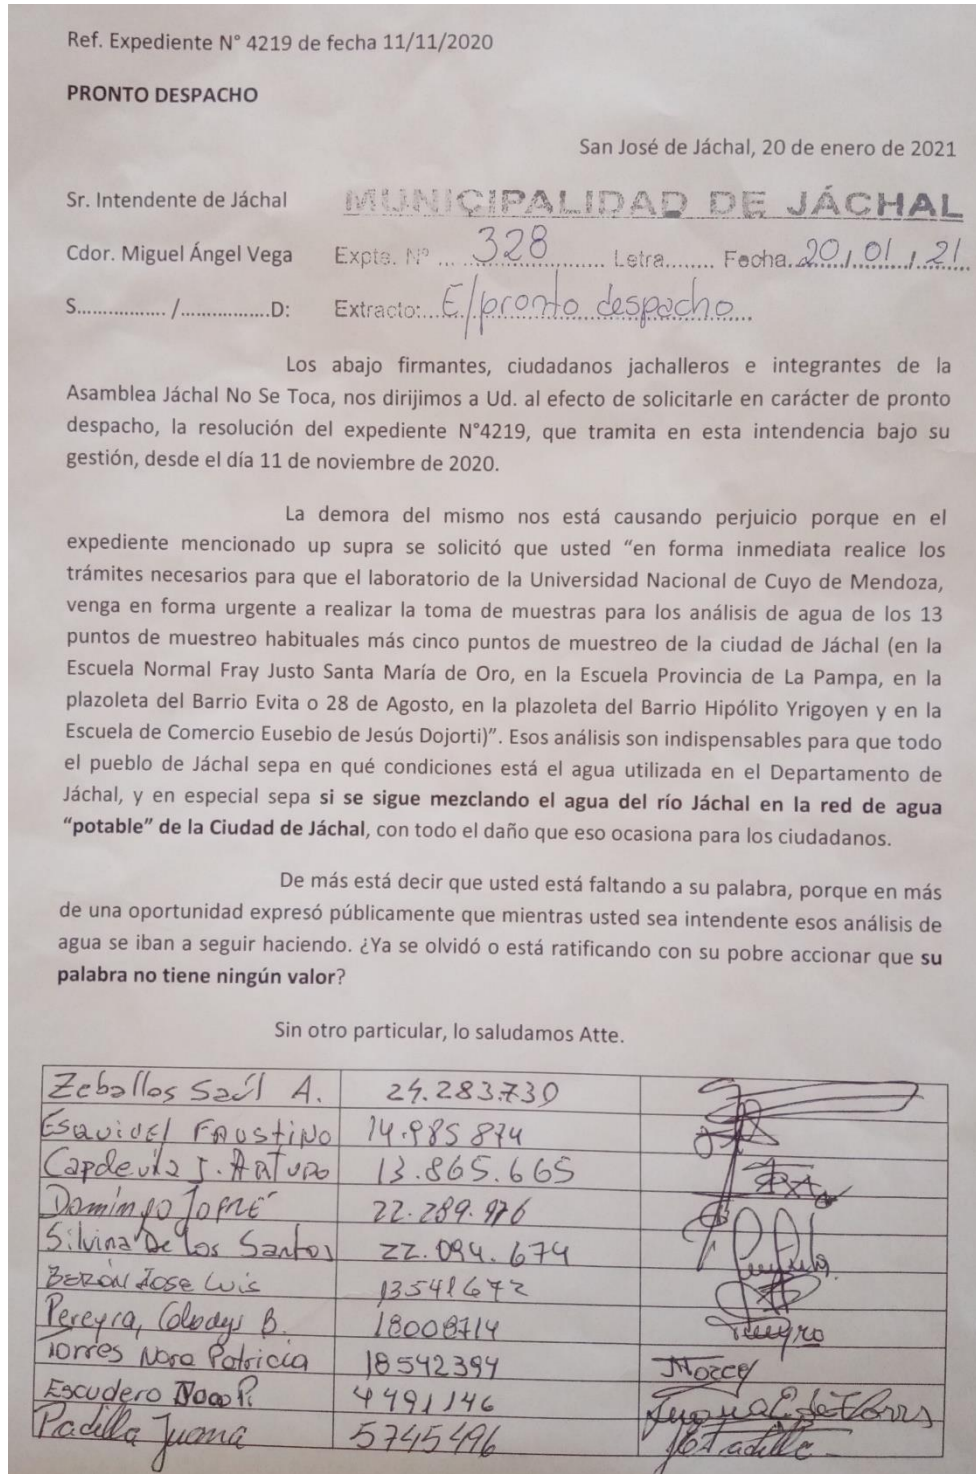 Ref. Expediente N° 4219 de fecha 11/11/2020
PRONTO DESPACHO
San José de Jáchal, 20 de enero de 2021
Sr. Intendente de Jáchal
MUNICIPALIDAD DE JÁCHAL
Cdor. Miguel Ángel Vega
Expte. N° ... 328 ........... Letra........ Fecha. 20 / 01 / 21
S................. /.................D:
Extracto:...E/pronto despacho...
Los abajo firmantes, ciudadanos jachalleros e integrantes de la
Asamblea Jáchal No Se Toca, nos dirijimos a Ud. al efecto de solicitarle en carácter de pronto
despacho, la resolución del expediente N°4219, que tramita en esta intendencia bajo su
gestión, desde el día 11 de noviembre de 2020.
La demora del mismo nos está causando perjuicio porque en el
expediente mencionado up supra se solicitó que usted “en forma inmediata realice los
trámites necesarios para que el laboratorio de la Universidad Nacional de Cuyo de Mendoza,
venga en forma urgente a realizar la toma de muestras para los análisis de agua de los 13
puntos de muestreo habituales más cinco puntos de muestreo de la ciudad de Jáchal (en la
Escuela Normal Fray Justo Santa María de Oro, en la Escuela Provincia de La Pampa, en la
plazoleta del Barrio Evita o 28 de Agosto, en la plazoleta del Barrio Hipólito Yrigoyen y en la
Escuela de Comercio Eusebio de Jesús Dojorti)”. Esos análisis son indispensables para que todo
el pueblo de Jáchal sepa en qué condiciones está el agua utilizada en el Departamento de
Jáchal, y en especial sepa si se sigue mezclando el agua del río Jáchal en la red de agua
“potable” de la Ciudad de Jáchal, con todo el daño que eso ocasiona para los ciudadanos.
De más está decir que usted está faltando a su palabra, porque en más
de una oportunidad expresó públicamente que mientras usted sea intendente esos análisis de
agua se iban a seguir haciendo. ¿Ya se olvidó o está ratificando con su pobre accionar que su
palabra no tiene ningún valor?
Sin otro particular, lo saludamos Atte.
Zeballos Saúl A. 24.283.730
Esquivel Faustino 14.985 874
Capdevila J. Arturo 13.865.665
Domingo Jofré 22.289.976
Silvina De los Santos 22.094.674
Berón Jose Luis 13541672
Pereyra, Gladys B. 18008714
Torres Nora Patricia 18542394
Escudero 4491146
Padilla Juana 5745496